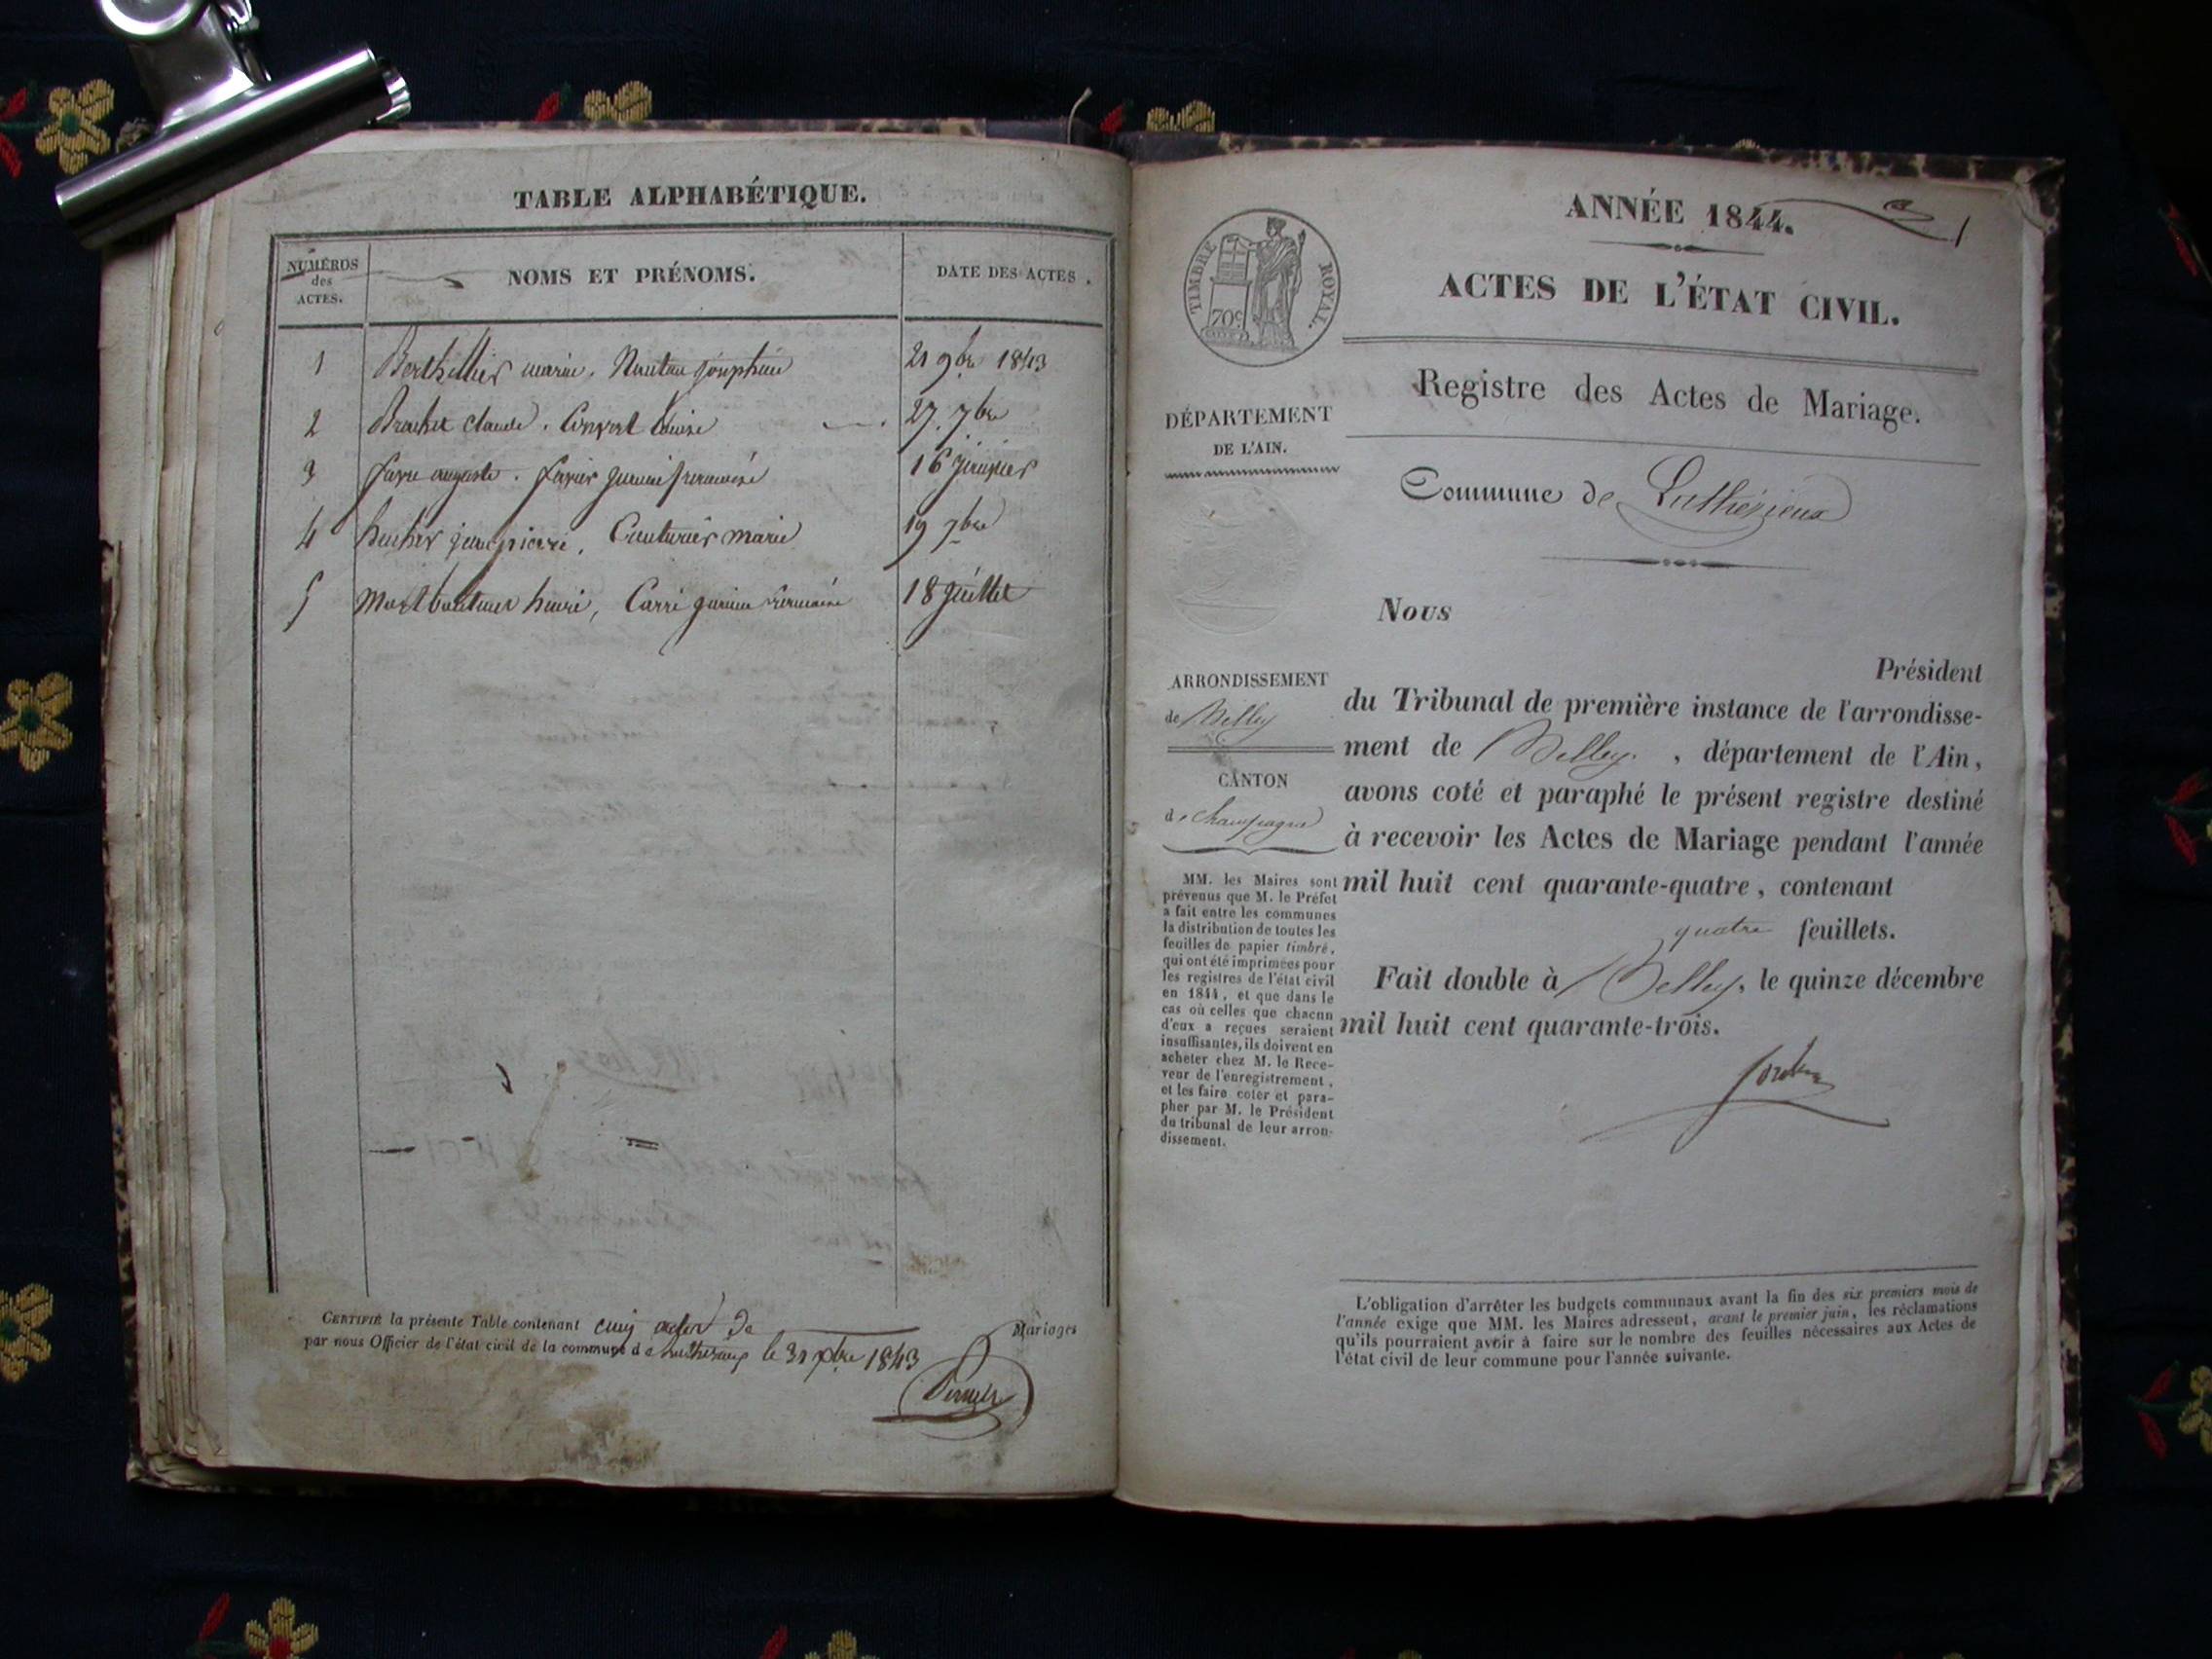 TABLE ALPHABÉTIQUE.
NUMÉROS des ACTES.
NOMS ET PRÉNOMS.
DATE DES ACTES.
1 Berthillier marie, josephine 21 9bre 1843
2 Brachet claude. Convert Louise 27. 7bre
3 favre auguste. 16 janvier
4 jean pierre, Couturier marie 19 7bre
5 henri, Carri 18 juillet
CERTIFIÉ la présente Table contenant cinq actes de Mariages
par nous Officier de l'état civil de la commune de le 31 xbre 1843
TIMBRE ROYAL.
70c
ANNÉE 1844.
1
ACTES DE L'ÉTAT CIVIL.
Registre des Actes de Mariage.
DÉPARTEMENT
DE L'AIN.
Commune de Luthézieux
Nous
Président
ARRONDISSEMENT
de Belley
CANTON
de Champagne
du Tribunal de première instance de l'arrondisse-
ment de Belley, département de l'Ain,
avons coté et paraphé le présent registre destiné
à recevoir les Actes de Mariage pendant l'année
mil huit cent quarante-quatre, contenant
quatre feuillets.
Fait double à Belley, le quinze décembre
mil huit cent quarante-trois.
MM. les Maires sont
prévenus que M. le Préfet
a fait entre les communes
la distribution de toutes les
feuilles de papier timbré,
qui ont été imprimées pour
les registres de l'état civil
en 1844, et que dans le
cas où celles que chacun
d'eux a reçues seraient
insuffisantes, ils doivent en
acheter chez M. le Rece-
veur de l'enregistrement,
et les faire coter et para-
pher par M. le Président
du tribunal de leur arron-
dissement.
L'obligation d'arrêter les budgets communaux avant la fin des six premiers mois de
l'année exige que MM. les Maires adressent, avant le premier juin, les réclamations
qu'ils pourraient avoir à faire sur le nombre des feuilles nécessaires aux Actes de
l'état civil de leur commune pour l'année suivante.